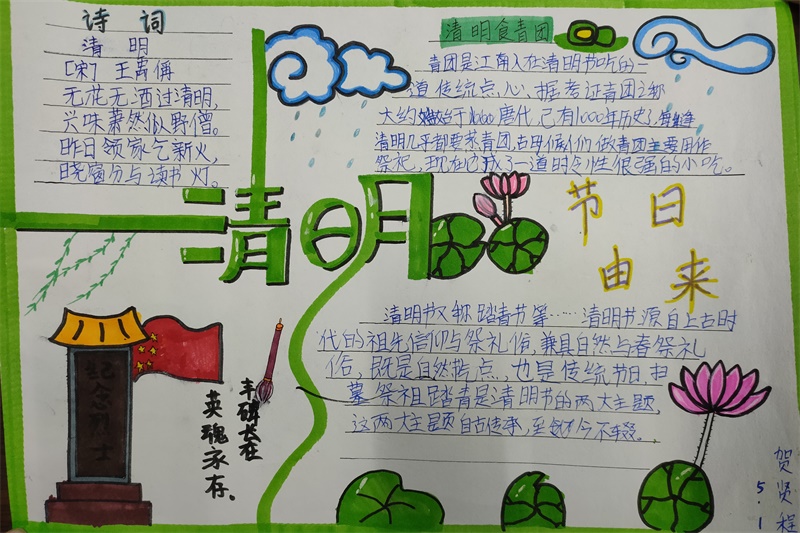 诗词
清明
[宋] 王禹偁
无花无酒过清明,
兴味萧然似野僧。
昨日领家乞新火,
晓窗分与读书灯。
清明食青团
青团是江南人在清明节吃的一
道传统点心,据考证青团之称
大约始于唐代,已有1000年历史,每逢
清明几乎都要蒸青团,古时候人们做青团主要用作
祭祀,现在它成了一道时令性很强的小吃。
清明
节日
由来
清明节又称踏青节等……清明节源自上古时
代的祖先信仰与祭礼俗,兼具自然与春祭礼
俗,既是自然点,也是传统节日,扫
墓祭祖踏青是清明节的两大主题,
这两大主题自古传承,至今不辍。
纪念烈士
丰碑长在
英魂永存.
贺贤程
5.1